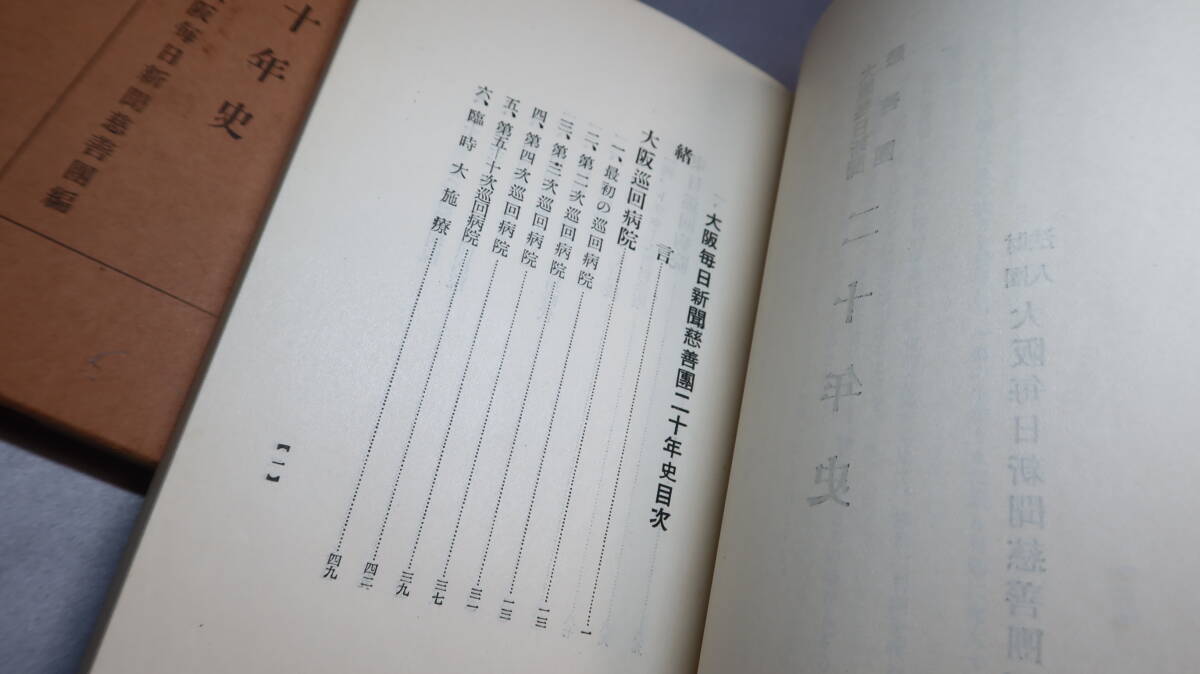 大阪毎日新聞慈善團二十年史目次
緒言……一
大阪巡回病院……一三
一、最初の巡回病院……一三
二、第二次巡回病院……三一
三、第三次巡回病院……三七
四、第四次巡回病院……三九
五、第五—十次巡回病院……四二
六、臨時大施療……四九
【一】
十年史
阪毎日新聞慈善團編
財團法人 大阪毎日新聞慈善團
二十年史